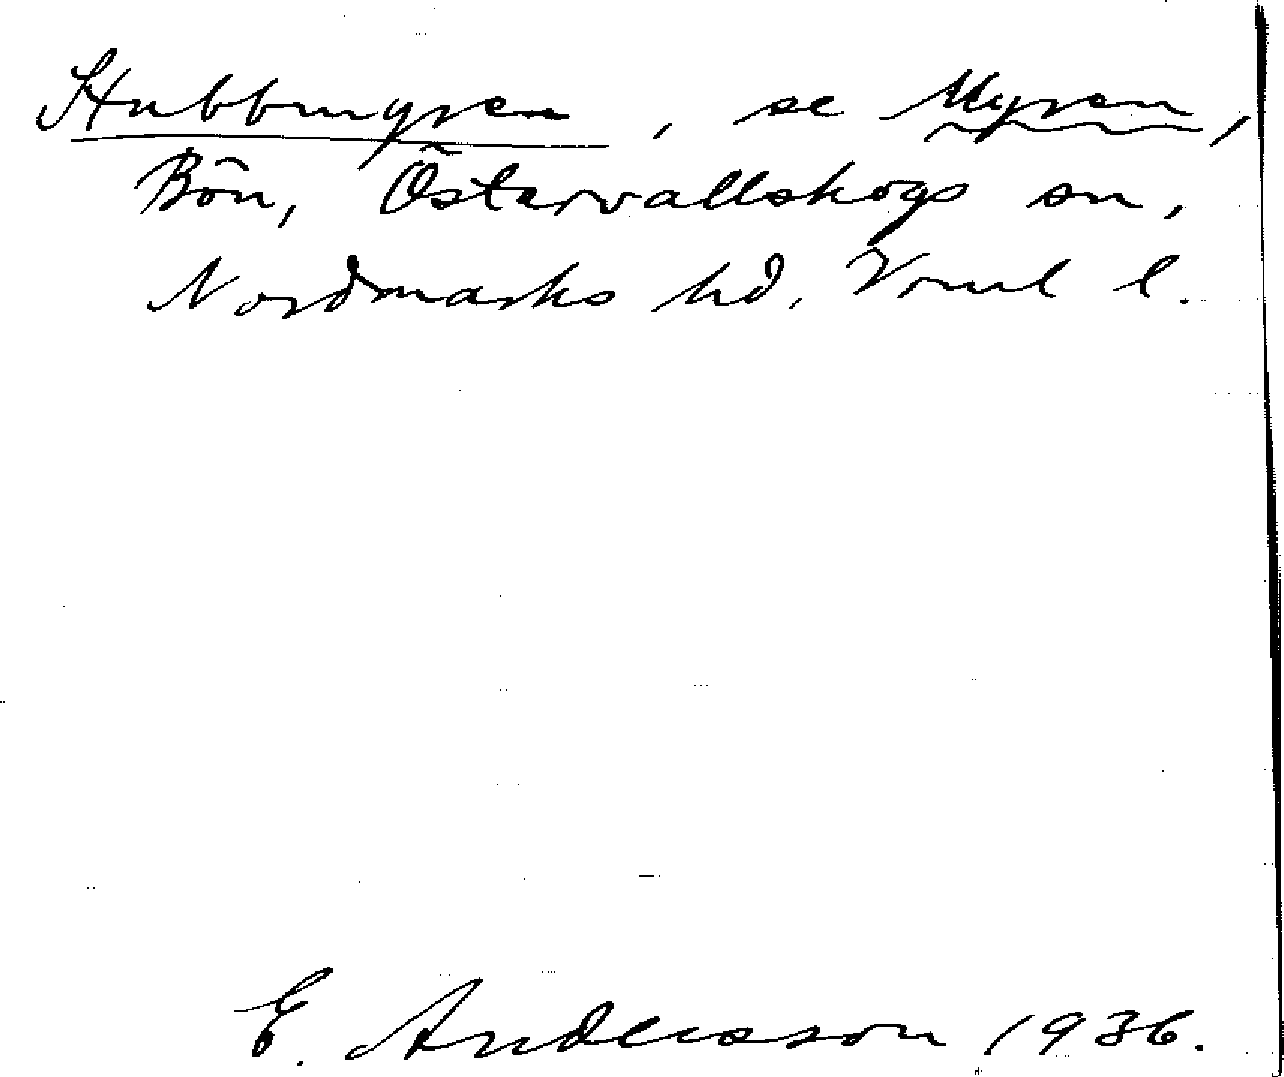 Stubbmyren, se Myren,
Bön, Östervallskogs sn,
Nordmarks hd, Vrml l.
E. Andersson 1936.